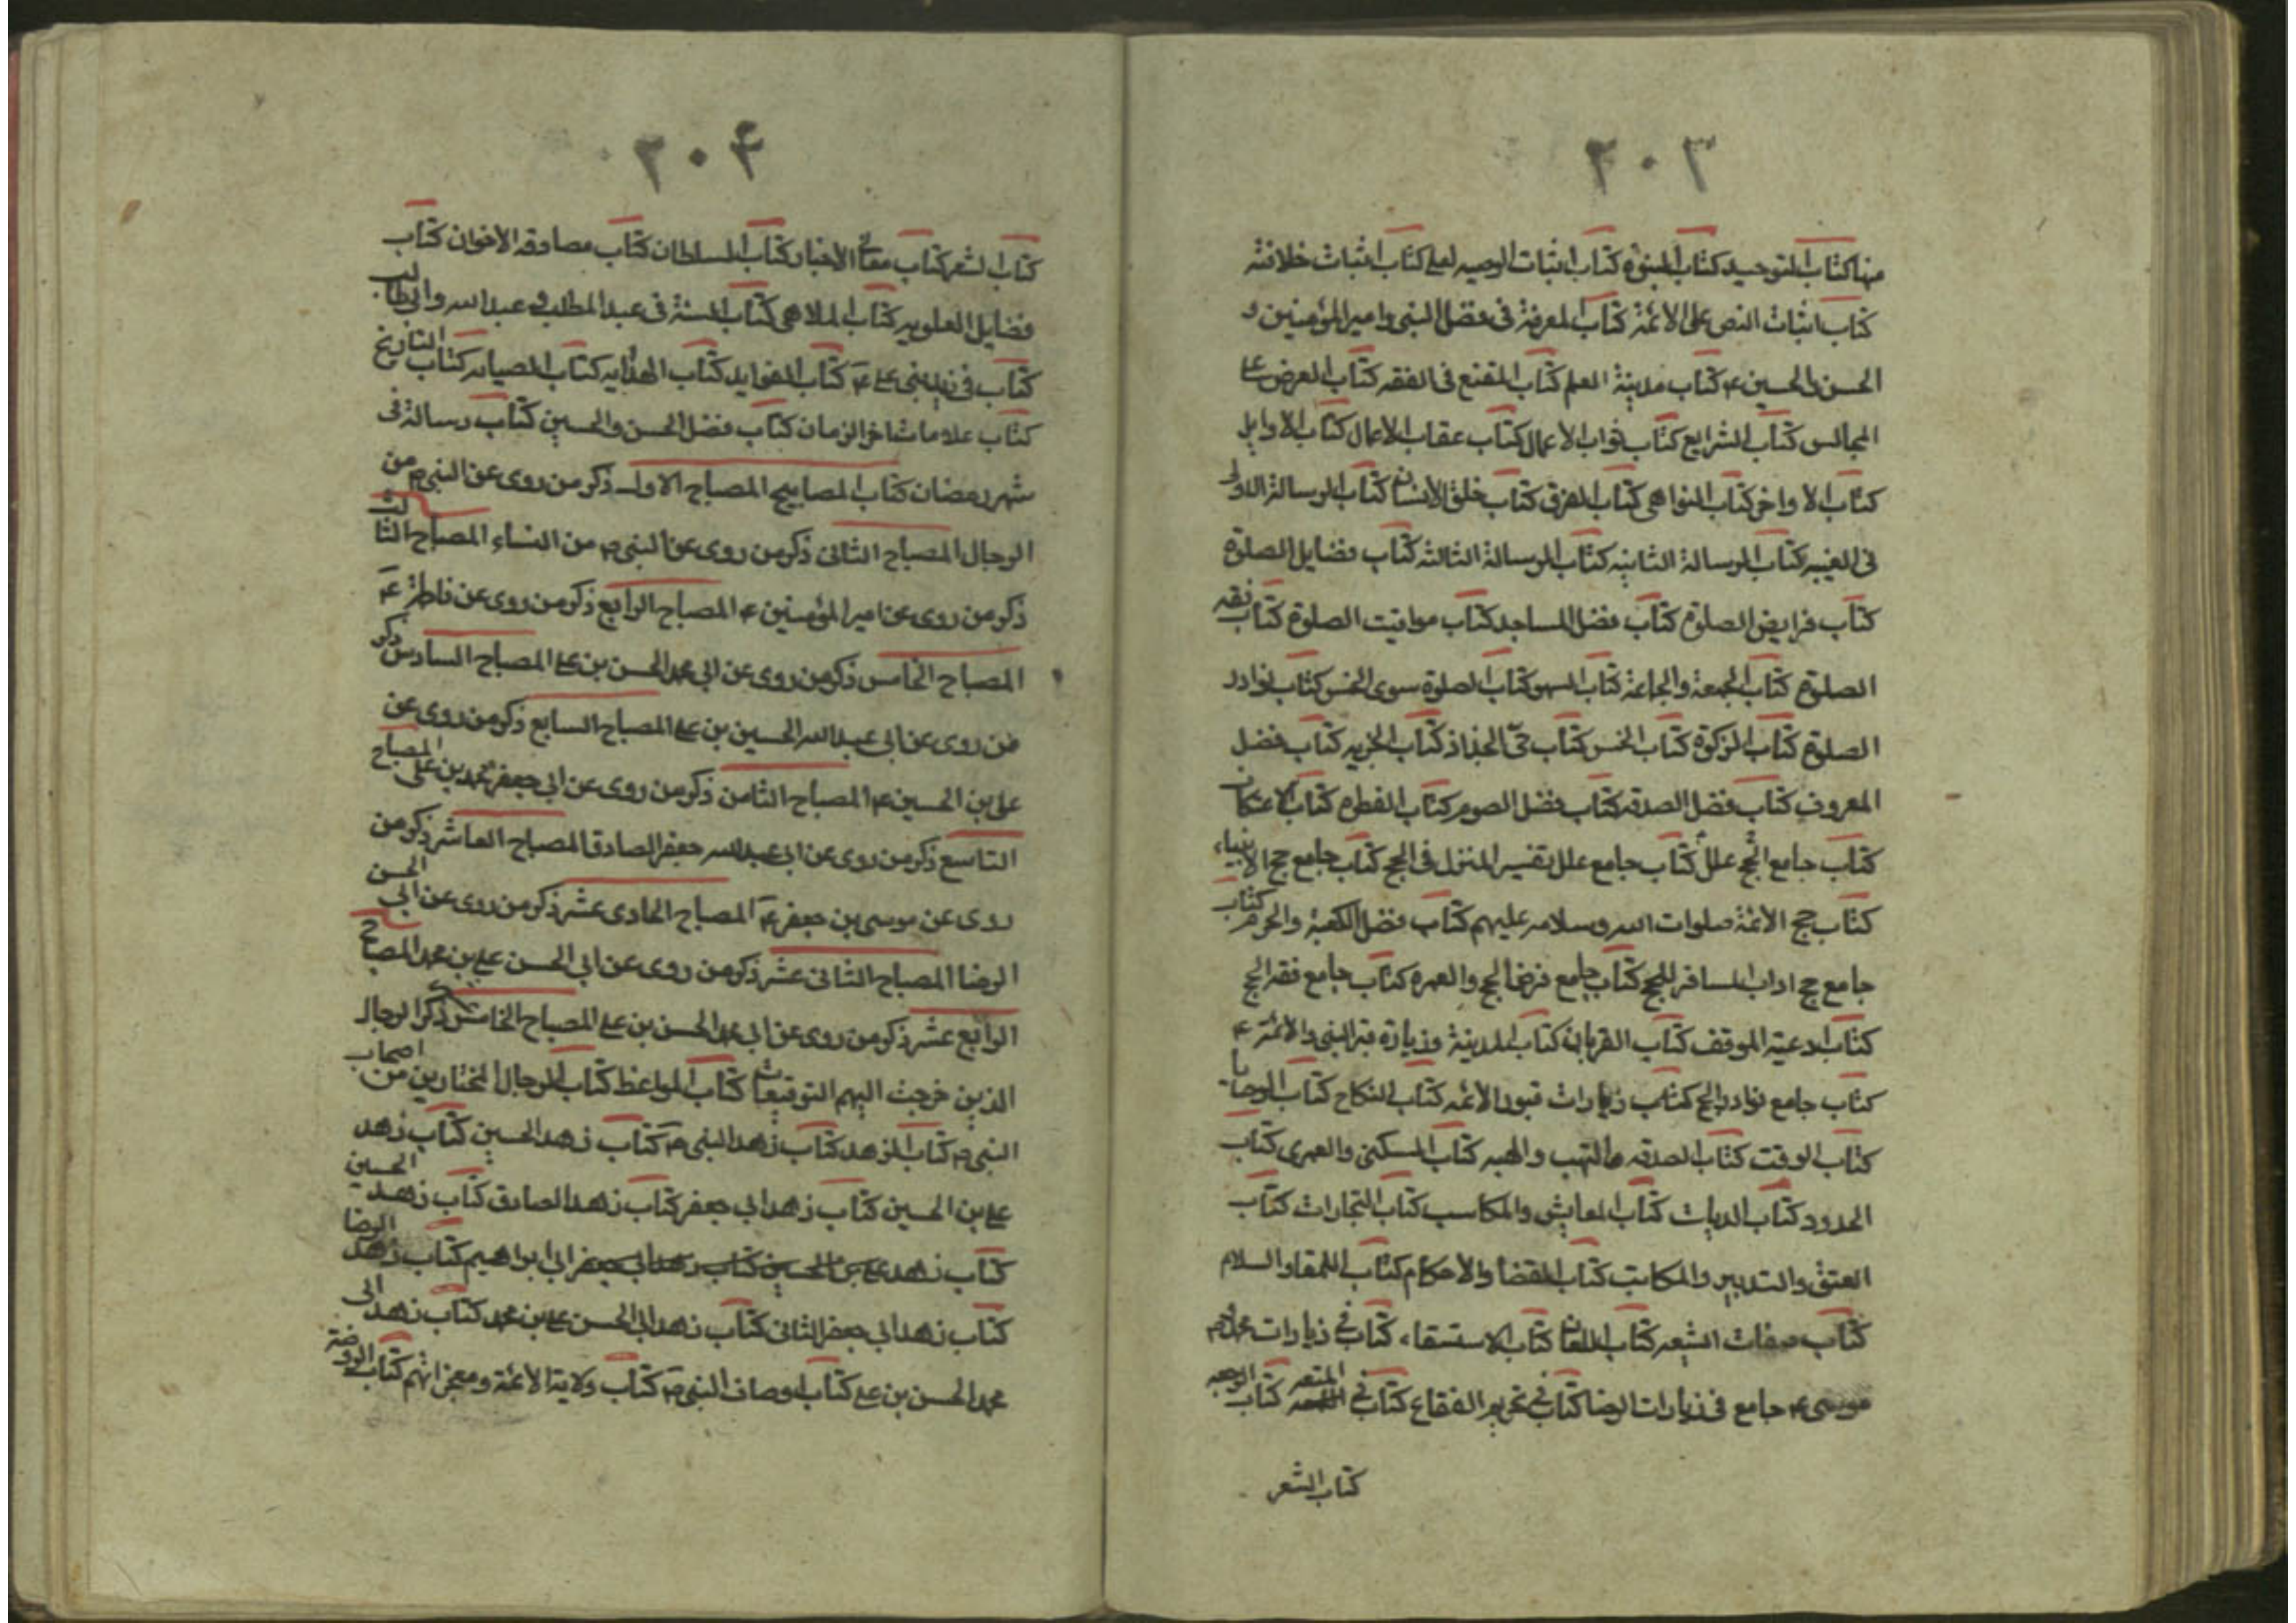 ٢٠٣
منها كتاب التوحيد كتاب النبوة كتاب اثبات الوصيه لعلى كتاب اثبات خلافته
كتاب اثبات النص على الائمة كتاب المعرفة فى فضل النبى وامير المؤمنين و
الحسن والحسين ع كتاب مدينة العلم كتاب المقنع فى الفقه كتاب العرض على
المجالس كتاب الشرايع كتاب ثواب الاعمال كتاب عقاب الاعمال كتاب الاوايل
كتاب الاواخر كتاب النواهى كتاب الفرق كتاب خلق الانسان كتاب الرسالة الاولى
فى الغيبه كتاب الرسالة الثانيه كتاب الرسالة الثالثه كتاب فضايل الصلوة
كتاب فرايض الصلوة كتاب فضل المساجد كتاب مواقيت الصلوة كتاب فقه
الصلوة كتاب الجمعة والجماعة كتاب السهو كتاب الصلوة سوى الخمس كتاب نوادر
الصلوة كتاب الزكوة كتاب الخمس كتاب حق الجذاذ كتاب الجزيه كتاب فضل
المعروف كتاب فضل الصدقه كتاب فضل الصوم كتاب الفطرة كتاب الاعتكاف
كتاب جامع الحج علل كتاب جامع علل تفسير المنزل فى الحج كتاب جامع حج الانبياء
كتاب حج الائمة صلوات الله وسلامه عليهم كتاب فضل الكعبة والحرم كتاب
جامع حج اداب المسافر للحج كتاب جامع فرض الحج والعمره كتاب جامع فقه الحج
كتاب ادعية الموقف كتاب القربان كتاب المدينة وزيارة قبر النبى والائمة ع
كتاب جامع نوادر الحج كتاب زيارات قبور الائمه كتاب النكاح كتاب الوصايا
كتاب الوقت كتاب الصدقه والنهب والهبه كتاب السكنى والعمرى كتاب
الحدود كتاب الديات كتاب المعايش والمكاسب كتاب التجارات كتاب
العتق والتدبير والمكاتب كتاب القضا والاحكام كتاب اللقا والسلام
كتاب صفات الشيعه كتاب اللعان كتاب الاستسقاء كتاب فى زيارات
موسى ع جامع فى زيارات الرضا كتاب فى تحريم الفقاع كتاب فى المتعه كتاب الرجعه
كتاب الشعر
٢٠٤
كتاب الشعر كتاب معانى الاخبار كتاب السلطان كتاب مصادقه الاخوان كتاب
فضايل العلويه كتاب الملاهى كتاب السنة فى عبد المطلب وعبد الله وابى طالب
كتاب فى زيد بنى على ع كتاب الفوايد كتاب الهدايه كتاب الصيانه كتاب التاريخ
كتاب علامات اخر الزمان كتاب فضل الحسن والحسين كتاب رسالة فى
شهر رمضان كتاب المصابيح المصباح الاول ذكر من روى عن النبى ص من
الرجال المصباح الثانى ذكر من روى عن النبى ص من النساء المصباح الثالث
ذكر من روى عن امير المؤمنين ع المصباح الرابع ذكر من روى عن فاطمة ع
المصباح الخامس ذكر من روى عن ابى محمد الحسن بن على المصباح السادس ذكر
من روى عن ابى عبد الله الحسين بن على المصباح السابع ذكر من روى عن
على بن الحسين ع المصباح الثامن ذكر من روى عن ابى جعفر محمد بن على المصباح
التاسع ذكر من روى عن ابى عبد الله جعفر الصادق المصباح العاشر ذكر من
روى عن موسى بن جعفر ع المصباح الحادى عشر ذكر من روى عن ابى الحسن
الرضا المصباح الثانى عشر ذكر من روى عن ابى الحسن على بن محمد المصباح
الرابع عشر ذكر من روى عن ابى محمد الحسن بن على المصباح الخامس ذكر الرجال
الذين خرجت اليهم التوقيعات كتاب المواعظ كتاب الرجال المختارين من اصحاب
النبى ص كتاب الزهد كتاب زهد النبى ص كتاب زهد الحسين كتاب زهد
على بن الحسين كتاب زهد ابى جعفر كتاب زهد الصادق كتاب زهد الحسين
كتاب زهد على بن الحسين كتاب زهد ابى جعفر ابى ابراهيم كتاب زهد الرضا
كتاب زهد ابى جعفر الثانى كتاب زهد ابى الحسن على بن محمد كتاب زهد ابى
محمد الحسن بن على كتاب اوصاف النبى ص كتاب ولاية الائمة ومعجزاتهم كتاب الروضة